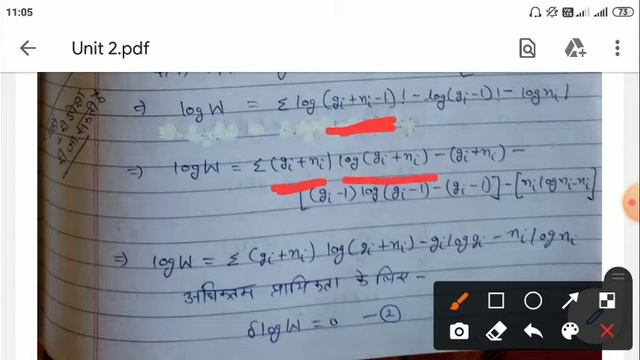 11:05
73
Unit 2.pdf
⇒ log W = Σ log (gi+ni-1)! - log(gi-1)! - log ni!
⇒ log W = Σ (gi+ni) log (gi+ni) - (gi+ni) -
[(gi-1) log (gi-1) - (gi-1)] - [ni log ni - ni]
⇒ log W = Σ (gi+ni) log (gi+ni) - gi log gi - ni log ni
अधिकतम प्रायिकता के लिए -
δ log W = 0 - ②